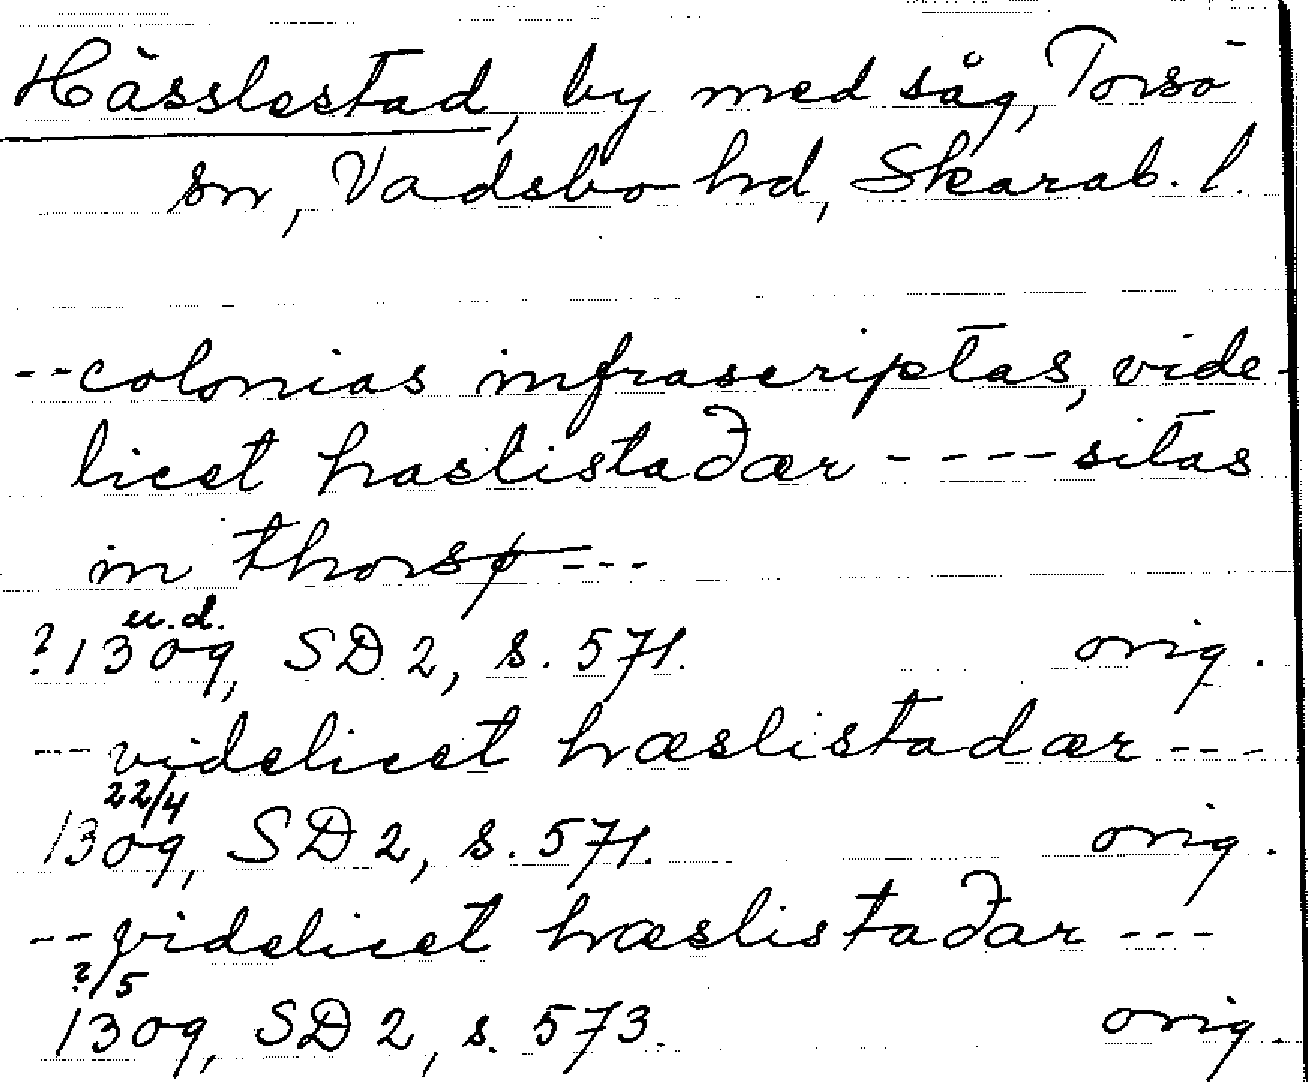 Hässlestad, by med såg, Torsö
sn, Vadsbo hd, Skarab. l.
-- colonias infrascriptas, vide-
licet haslistaðær ---- sitas
in thorsø ---
u.d.
?1309, SD 2, s. 571. orig.
--- videlicet hæslistadær ---
22/4
1309, SD 2, s. 571. orig.
-- videlicet hæslistaðar ---
?/5
1309, SD 2, s. 573. orig.